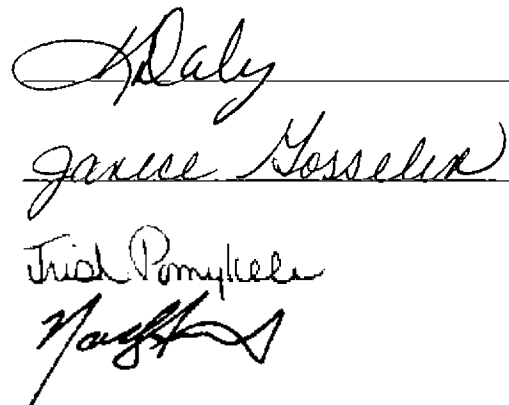 K Daly
Janice Gosselin
Trish Pomykala